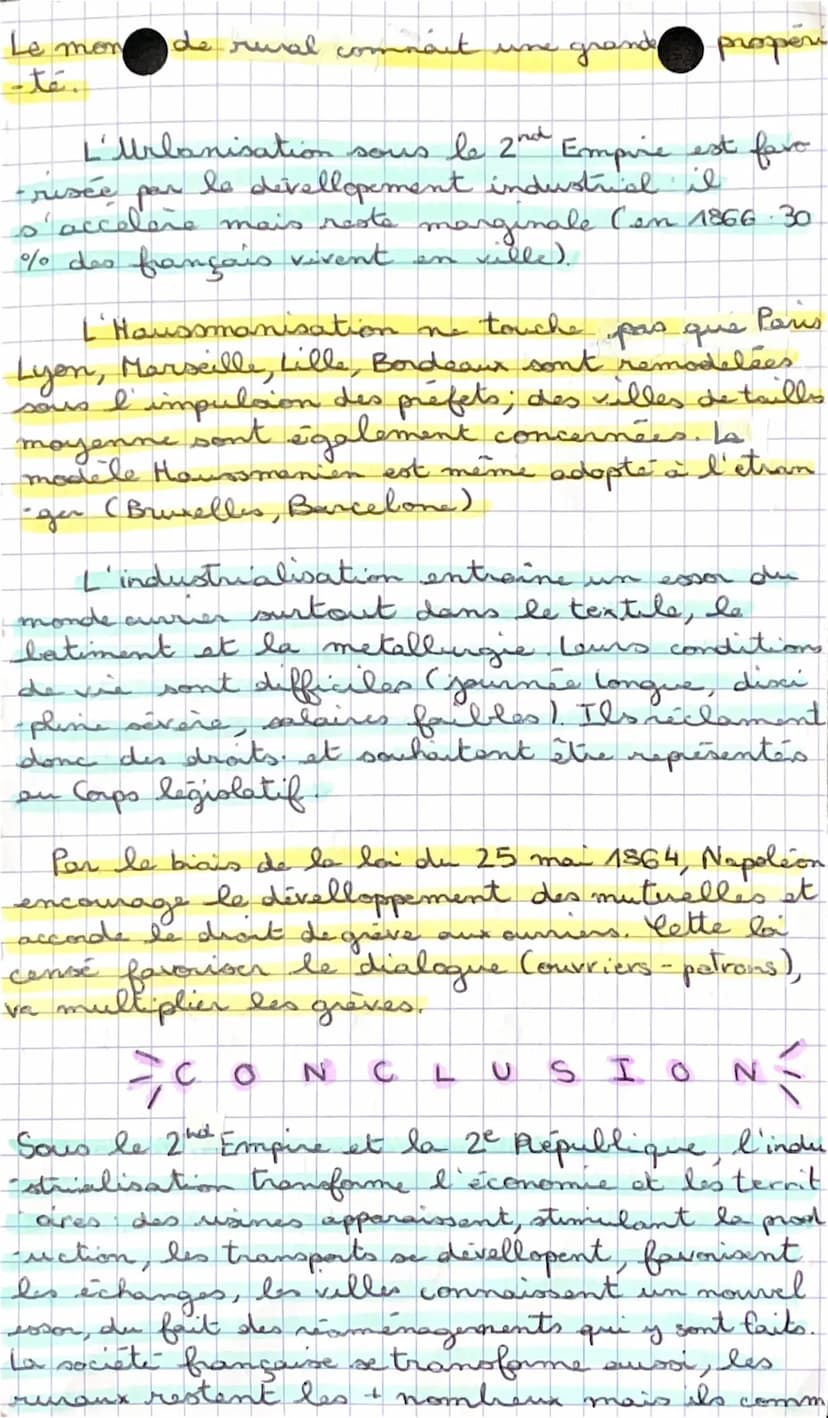 Le monde rural connait une grande propéri
-té.
L'Urbanisation sous le 2nd Empire est favo
-risée par le dévellopement industriel il
s'accélère mais reste marginale (en 1866 . 30
% des français vivent en ville).
L'Haussmanisation ne touche pas que Paris
Lyon, Marseille, Lille, Bordeaux sont remodelées
sous l'impulsion des préfets; des villes de taille
moyenne sont également concernées. Le
modèle Haussmanien est même adopté à l'etran
-ger (Bruxelles, Barcelone)
L'industrialisation entraîne un essor du
monde ouvrier surtout dans le textile, le
batiment et la metallurgie. Leurs conditions
de vie sont difficiles (journée longue, disci
-pline sévère, salaires faibles). Ils réclament
donc des droits. et souhaitent être représentés
au Corps législatif.
Par le biais de la loi du 25 mai 1864, Napoléon
encourage le dévelloppement des mutuelles et
accorde le droit de grève aux ouvriers. Cette loi
censé favoriser le dialogue (ouvriers - patrons),
va multiplier les grèves.
CONCLUSION
Sous le 2nd Empire et la 2e République, l'indu
-strialisation transforme l'économie et les territ
oires : des usines apparaissent, stimulant la prod
-uction, les transports se dévellopent, favorisent
les échanges, les villes connaissent un nouvel
essor, du fait des réaménagements qui y sont faits.
La société française se transforme aussi, les
ruraux restent les + nombreux mais ils comm